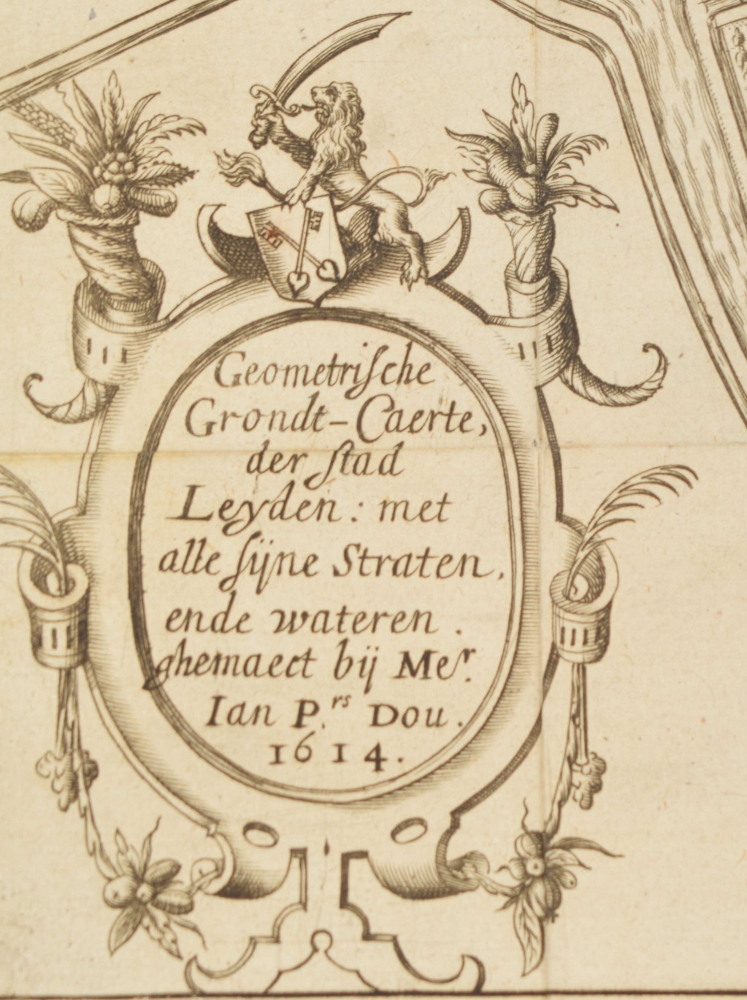 Geometriſche
Grondt-Caerte,
der ſtad
Leyden: met
alle ſijne Straten,
ende wateren.
ghemaect bij Meʳ.
Ian P.ʳˢ Dou.
1614.